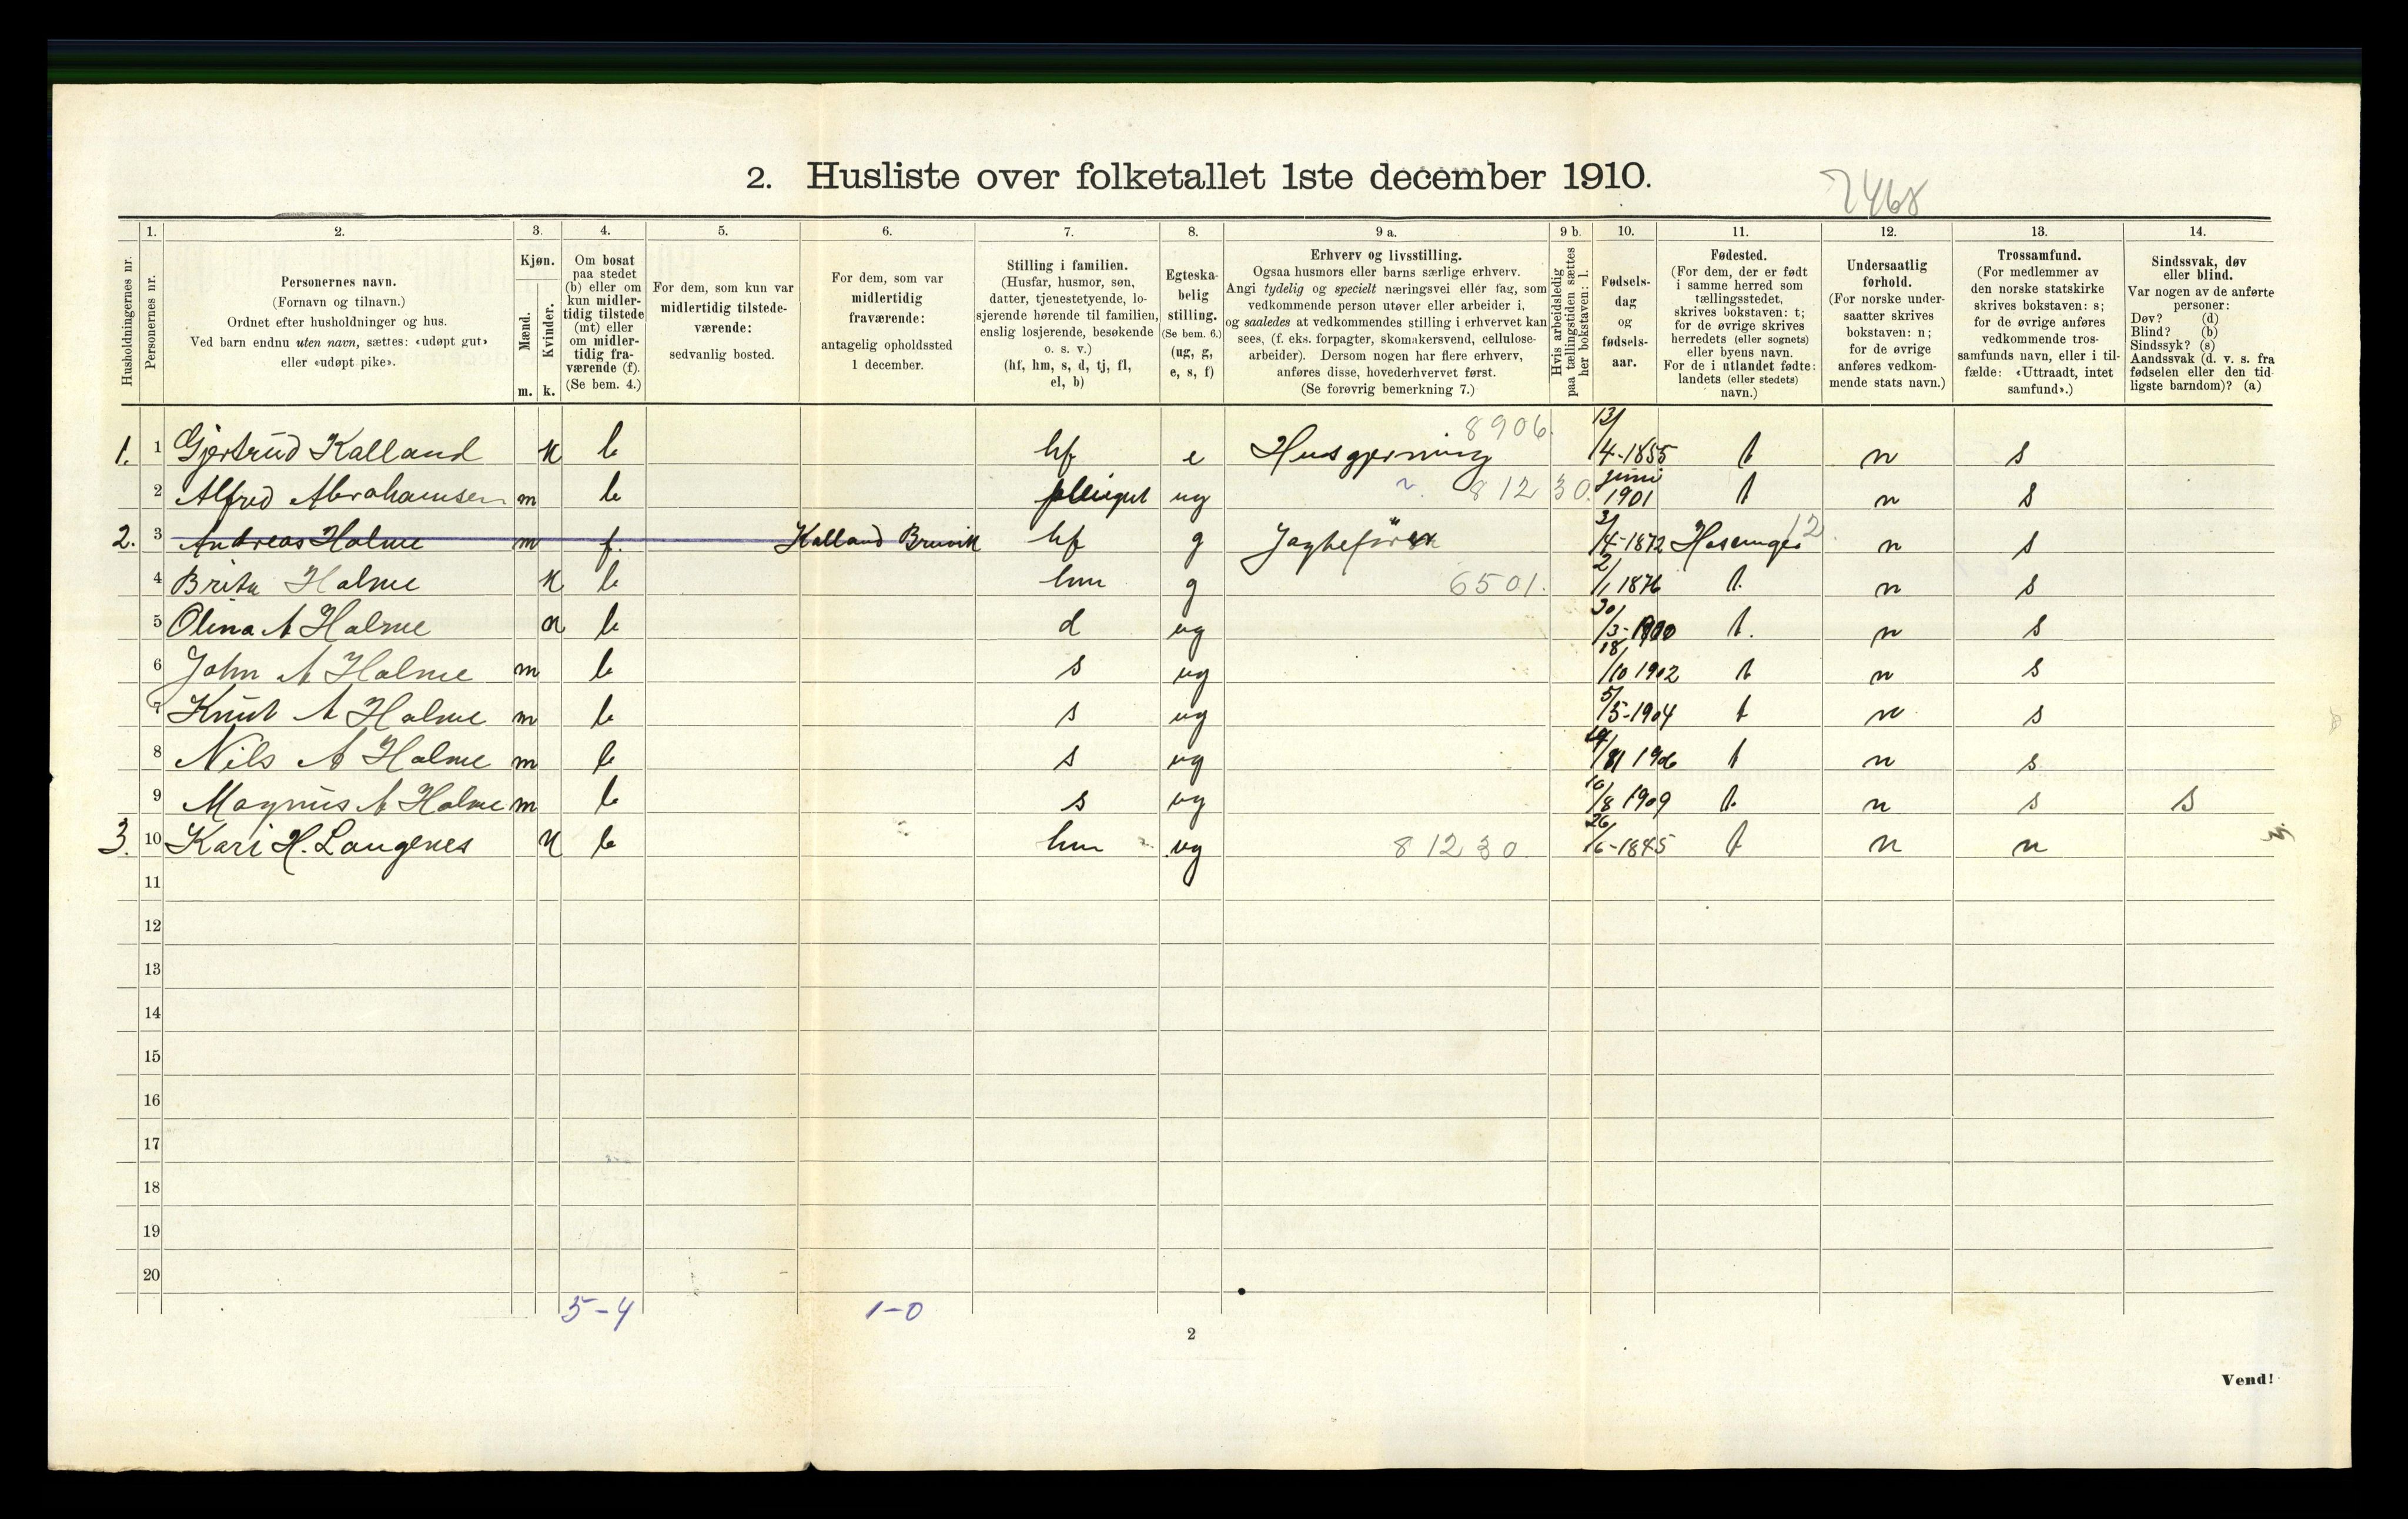 2. Husliste over folketallet 1ste december 1910.
7468
Husholdningernes nr.
1. Personernes nr.
2. Personernes navn.
(Fornavn og tilnavn.)
Ordnet efter husholdninger og hus.
Ved barn endnu uten navn, sættes: «udøpt gut»
eller «udøpt pike».
3. Kjøn.
Mænd. m.
Kvinder. k.
4. Om bosat
paa stedet
(b) eller om
kun midler-
tidig tilstede
(mt) eller
om midler-
tidig fra-
værende (f).
(Se bem. 4.)
5. For dem, som kun var
midlertidig tilstede-
værende:
sedvanlig bosted.
6. For dem, som var
midlertidig
fraværende:
antagelig opholdssted
1 december.
7. Stilling i familien.
(Husfar, husmor, søn,
datter, tjenestetyende, lo-
sjerende hørende til familien,
enslig losjerende, besøkende
o. s. v.)
(hf, hm, s, d, tj, fl,
el, b)
8. Egteska-
belig
stilling.
(Se bem. 6.)
(ug, g,
e, s, f)
9 a. Erhverv og livsstilling.
Ogsaa husmors eller barns særlige erhverv.
Angi tydelig og specielt næringsvei eller fag, som
vedkommende person utøver eller arbeider i,
og saaledes at vedkommendes stilling i erhvervet kan
sees, (f. eks. forpagter, skomakersvend, cellulose-
arbeider). Dersom nogen har flere erhverv,
anføres disse, hovederhvervet først.
(Se forøvrig bemerkning 7.)
9 b. Hvis arbeidsledig
paa tællingstiden sættes
her bokstaven: l.
10. Fødsels-
dag
og
fødsels-
aar.
11. Fødested.
(For dem, der er født
i samme herred som
tællingsstedet,
skrives bokstaven: t;
for de øvrige skrives
herredets (eller sognets)
eller byens navn.
For de i utlandet fødte:
landets (eller stedets)
navn.)
12. Undersaatlig
forhold.
(For norske under-
saatter skrives
bokstaven: n;
for de øvrige
anføres vedkom-
mende stats navn.)
13. Trossamfund.
(For medlemmer av
den norske statskirke
skrives bokstaven: s;
for de øvrige anføres
vedkommende tros-
samfunds navn, eller i til-
fælde: «Uttraadt, intet
samfund».)
14. Sindssvak, døv
eller blind.
Var nogen av de anførte
personer:
Døv? (d)
Blind? (b)
Sindssyk? (s)
Aandssvak (d. v. s. fra
fødselen eller den tid-
ligste barndom)? (a)
1. 1 Gjertrud Kalland k b hf e Husgjerning 8906. 13/4-1855 t n s
2 Alfred Abrahamsen m b ug 81230. juni 1901 t n s
2. 3 Andreas Holme m f. Kalland Bruvik hf g 3/4-1872 12 n s
4 Brita Holme k b hm g 6501. 2/1 1876 t. n s
5 Olina A Holme b d ug 30/3-1900 t. n s
6 John A Holme m b s ug 18/10 1902 t n s
7 Knut A Holme m b s ug 5/5-1904 t n s
8 Nils A Holme m b s ug 1906 t n s
9 Magnus A Holme m b s ug 10/8 1909 t. n s S
3. 10 Kari H. Langenes k b hm ug 81230. 26/6-1845 t n n
11
12
13
14
15
16
17
18
19
20
5-4 1-0
2
Vend!